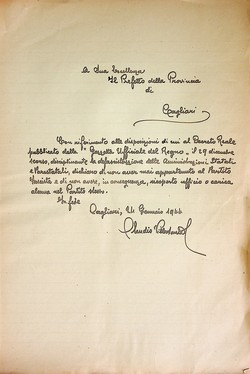 A Sua Eccellenza
Il Prefetto della Provincia
di
Cagliari
Con riferimento alle disposizioni di cui al Decreto Reale
pubblicato dalla Gazzetta Ufficiale del Regno, il 29 dicembre
scorso, disciplinante la defascistizzazione delle Amministrazioni Statali
e Parastatali, dichiaro di non aver mai appartenuto al Partito
Fascista e di non avere, in conseguenza, ricoperto ufficio o carica
alcuna nel Partito stesso.
In fede
Cagliari, 24 Gennaio 1944
Claudio